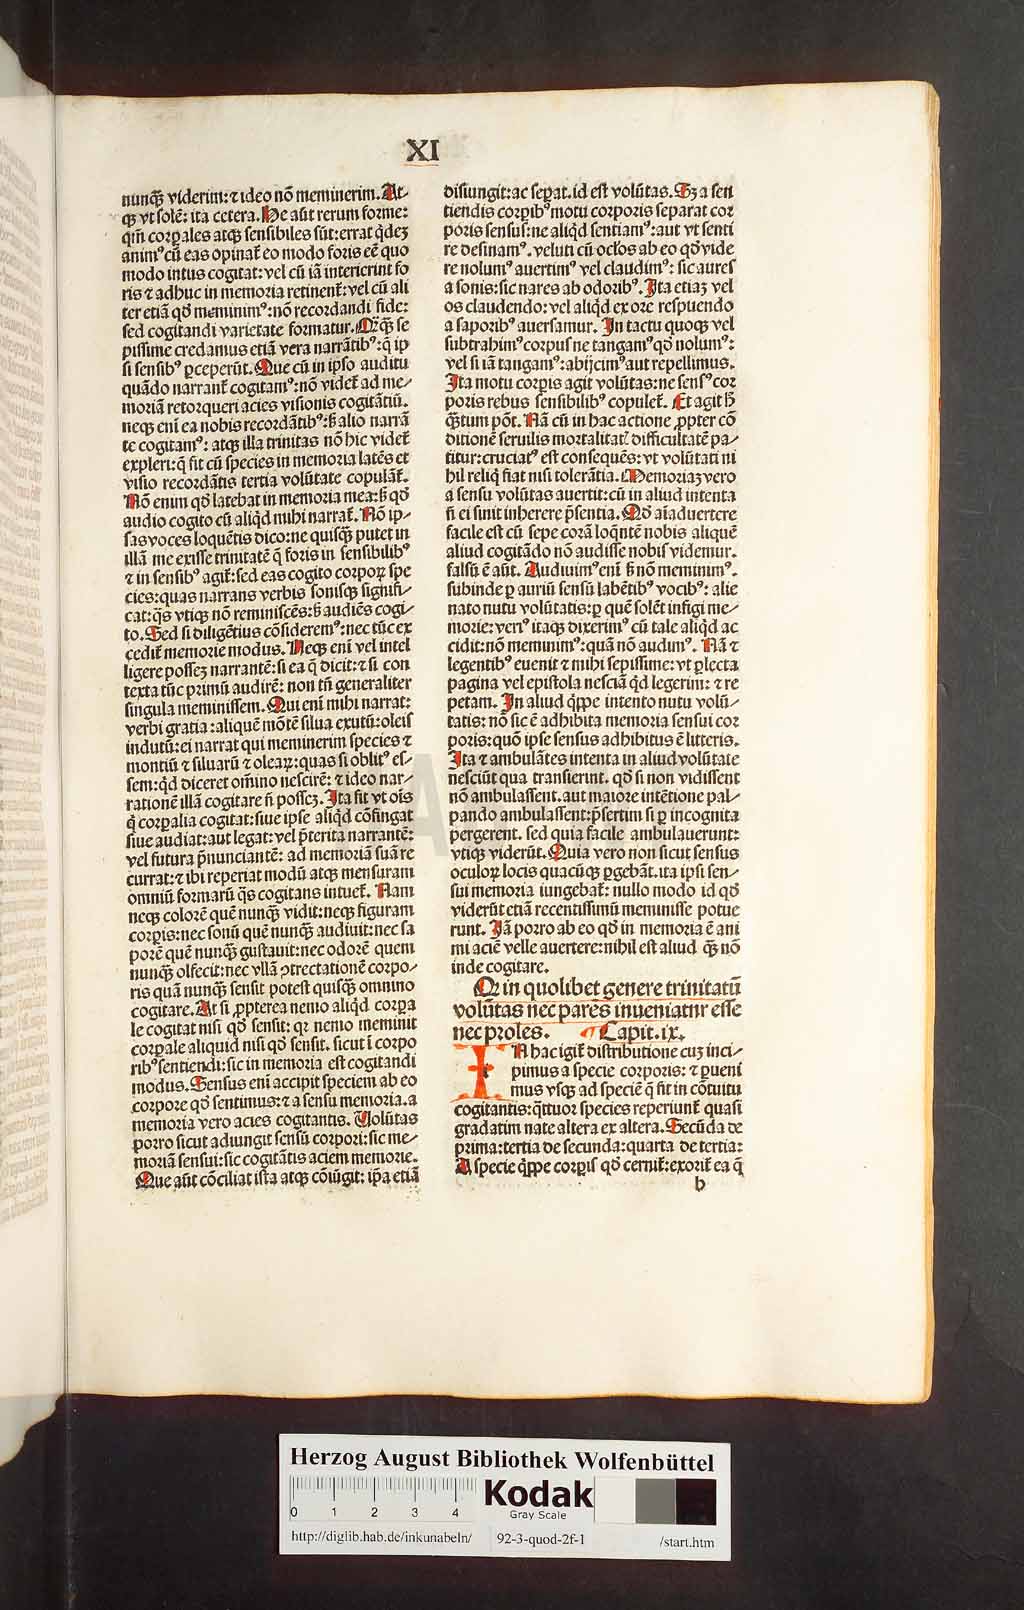 XI
nunq̃ viderim: ⁊ ideo nõ meminerim. At-
qꝫ vt solẽ: ita cetera. He aũt rerum forme:
qm̃ corꝑales atqꝫ sensibiles sũt: errat q̈dẽ
animꝰ cũ eas opinat᷑ eo modo foris eẽ quo
modo intus cogitat: vel cũ iã interierint fo
ris ⁊ adhuc in memoria retinent᷑: vel cũ ali
ter etiã qď meminimꝰ: nõ recordandi fide:
sed cogitandi varietate formatur. Qr̃q̃ se
pissime credamus etiã vera narrãtibꝰ: q̃ ip
si sensibꝰ ꝑceperũt. Que cũ in ipso auditu
quãdo narrant᷑ cogitamꝰ: nõ videt᷑ ad me-
moriã retorqueri acies visionis cogitãtiũ.
neqꝫ eni ea nobis recordãtibꝰ: ß alio narrã
te cogitamꝰ: atqꝫ illa trinitas nõ hic videt᷑
expleri: q̃ fit cũ species in memoria latẽs et
visio recordãtis tertia volũtate copulãt᷑.
Nõ enim qď latebat in memoria mea: ß qď
audio cogito cũ aliqd mihi narrat᷑. Nõ ip-
sas voces loquẽtis dico: ne quisq̃ putet in
illã me exisse trinitatẽ q̃ foris in sensibilibꝰ
⁊ in sensibꝰ agit᷑: sed eas cogito corpoꝝ spe
cies: quas narrans verbis sonisqꝫ signifi-
cat: q̃s vtiqꝫ nõ reminiscẽs: ß audiẽs cogi-
to. Sed si diligẽtius cõsideremꝰ: nec tũc ex
cedit᷑ memorie modus. Neqꝫ eni vel intel
ligere possẽ narrantẽ: si ea q̃ dicit: ⁊ si con
texta tũc primũ audirẽ: non tñ generaliter
singula meminissem. Qui eni mihi narrat:
verbi gratia: aliquẽ mõtẽ silua exutũ: oleis
indutũ: ei narrat qui meminerim species ⁊
montiũ ⁊ siluarũ ⁊ oleaꝝ: quas si oblitꝰ es-
sem: qd diceret om̃ino nescirẽ: ⁊ ideo nar-
rationẽ illã cogitare ñ possẽ. Ita fit vt oĩs
q̃ corꝑalia cogitat: siue ipse aliqd cõfingat
siue audiat: aut legat: vel p̃terita narrantẽ:
vel futura p̃nunciantẽ: ad memoriã suã re
currat: ⁊ ibi reperiat modũ atqꝫ mensuram
omniũ formarũ q̃s cogitans intuet᷑. Nam
neqꝫ colorẽ quẽ nunq̃ vidit: neqꝫ figuram
corꝑis: nec sonũ quẽ nunq̃ audiuit: nec sa
porẽ quẽ nunq̃ gustauit: nec odorẽ quem
nunq̃ olfecit: nec vllã ꝯtrectationẽ corpo-
ris quã nunq̃ sensit potest quisq̃ omnino
cogitare. At si ꝓpterea nemo aliqd corꝑa
le cogitat nisi qď sensit: qr nemo meminit
corꝑale aliquid nisi qď sensit. sicut ĩ corpo
ribꝰ sentiendi: sic in memoria est cogitandi
modus. Sensus eni accipit speciem ab eo
corpore qď sentimus: ⁊ a sensu memoria. a
memoria vero acies cogitantis. Volũtas
porro sicut adiungit sensũ corpori: sic me-
moriã sensui: sic cogitãtis aciem memorie.
Que aũt cõciliat ista atqꝫ cõiũgit: ip̃a etiã
disiungit: ac seꝑat. id est volũtas. Sꝫ a sen
tiendis corꝑibꝰ motu corporis separat cor
poris sensus: ne aliqd sentiamꝰ: aut vt senti
re desinamꝰ. veluti cũ oclos ab eo qď vide
re nolumꝰ auertimꝰ vel claudimꝰ: sic aures
a sonis: sic nares ab odoribꝰ. Ita etiaꝫ vel
os claudendo: vel aliqd ex ore respuendo
a saporibꝰ auersamur. In tactu quoqꝫ vel
subtrahimꝰ corpus ne tangamꝰ qď nolumꝰ:
vel si iã tangamꝰ: abijcimꝰ aut repellimus.
Ita motu corꝑis agit volũtas: ne sensꝰ cor
poris rebus sensibilibꝰ copulet᷑. Et agit h̃
q̃tum põt. Nã cũ in hac actione ꝓpter cõ
ditionẽ seruilis mortalitatꝭ difficultatẽ pa-
titur: cruciatꝰ est consequẽs: vt volũtati ni
hil reliq̃ fiat nisi tolerãtia. Memoriaꝫ vero
a sensu volũtas auertit: cũ in aliud intenta
ñ ei sinit inherere p̃sentia. Qď aĩaduertere
facile est cũ sepe corã loq̃ntẽ nobis aliquẽ
aliud cogitãdo nõ audisse nobis videmur.
falsũ ẽ aũt. Audiuimꝰ eni ß nõ meminimꝰ.
subinde ꝑ auriũ sensũ labẽtibꝰ vocibꝰ: alie
nato nutu volũtatis: ꝑ quẽ solẽt infigi me-
morie: veriꝰ itaqꝫ dixerimꝰ cũ tale aliqd ac
cidit: nõ meminimꝰ: quã nõ audimꝰ. Nã ⁊
legentibꝰ euenit ⁊ mihi sepissime: vt ꝑlecta
pagina vel epistola nesciã qd legerim: ⁊ re
petam. In aliud q̃ppe intento nutu volũ-
tatis: nõ sic ẽ adhibita memoria sensui cor
poris: quõ ipse sensus adhibitus ẽ litteris.
Ita ⁊ ambulãtes intenta in aliud volũtate
nesciũt qua transierint. qď si non vidissent
nõ ambulassent. aut maiore intẽtione pal-
pando ambulassent: p̃sertim si ꝑ incognita
pergerent. sed quia facile ambulauerunt:
vtiqꝫ viderũt. Quia vero non sicut sensus
oculoꝝ locis quacũqꝫ ꝑgebãt. ita ipsi sen-
sui memoria iungebat᷑: nullo modo id qď
viderũt etiã recentissimũ meminisse potue
runt. Iã porro ab eo qď in memoria ẽ ani
mi aciẽ velle auertere: nihil est aliud q̃ nõ
inde cogitare.
Qr in quolibet genere trinitatũ
volũtas nec parẽs inueniatur esse
nec proles. ¶ Capit. ix.
IN hac igit᷑ distributione cuꝫ inci-
pimus a specie corporis: ⁊ ꝑueni
mus vsqꝫ ad speciẽ q̃ fit in cõtuitu
cogitantis: q̃ttuor species reperiunt᷑ quasi
gradatim nate altera ex altera. Secũda de
prima: tertia de secunda: quarta de tertia:
A specie q̃ppe corꝑis qď cernit᷑: exorit᷑ ea q̃
b
Herzog August Bibliothek Wolfenbüttel
0 1 2 3 4
Kodak
Gray Scale
http://diglib.hab.de/inkunabeln/ 92-3-quod-2f-1 /start.htm